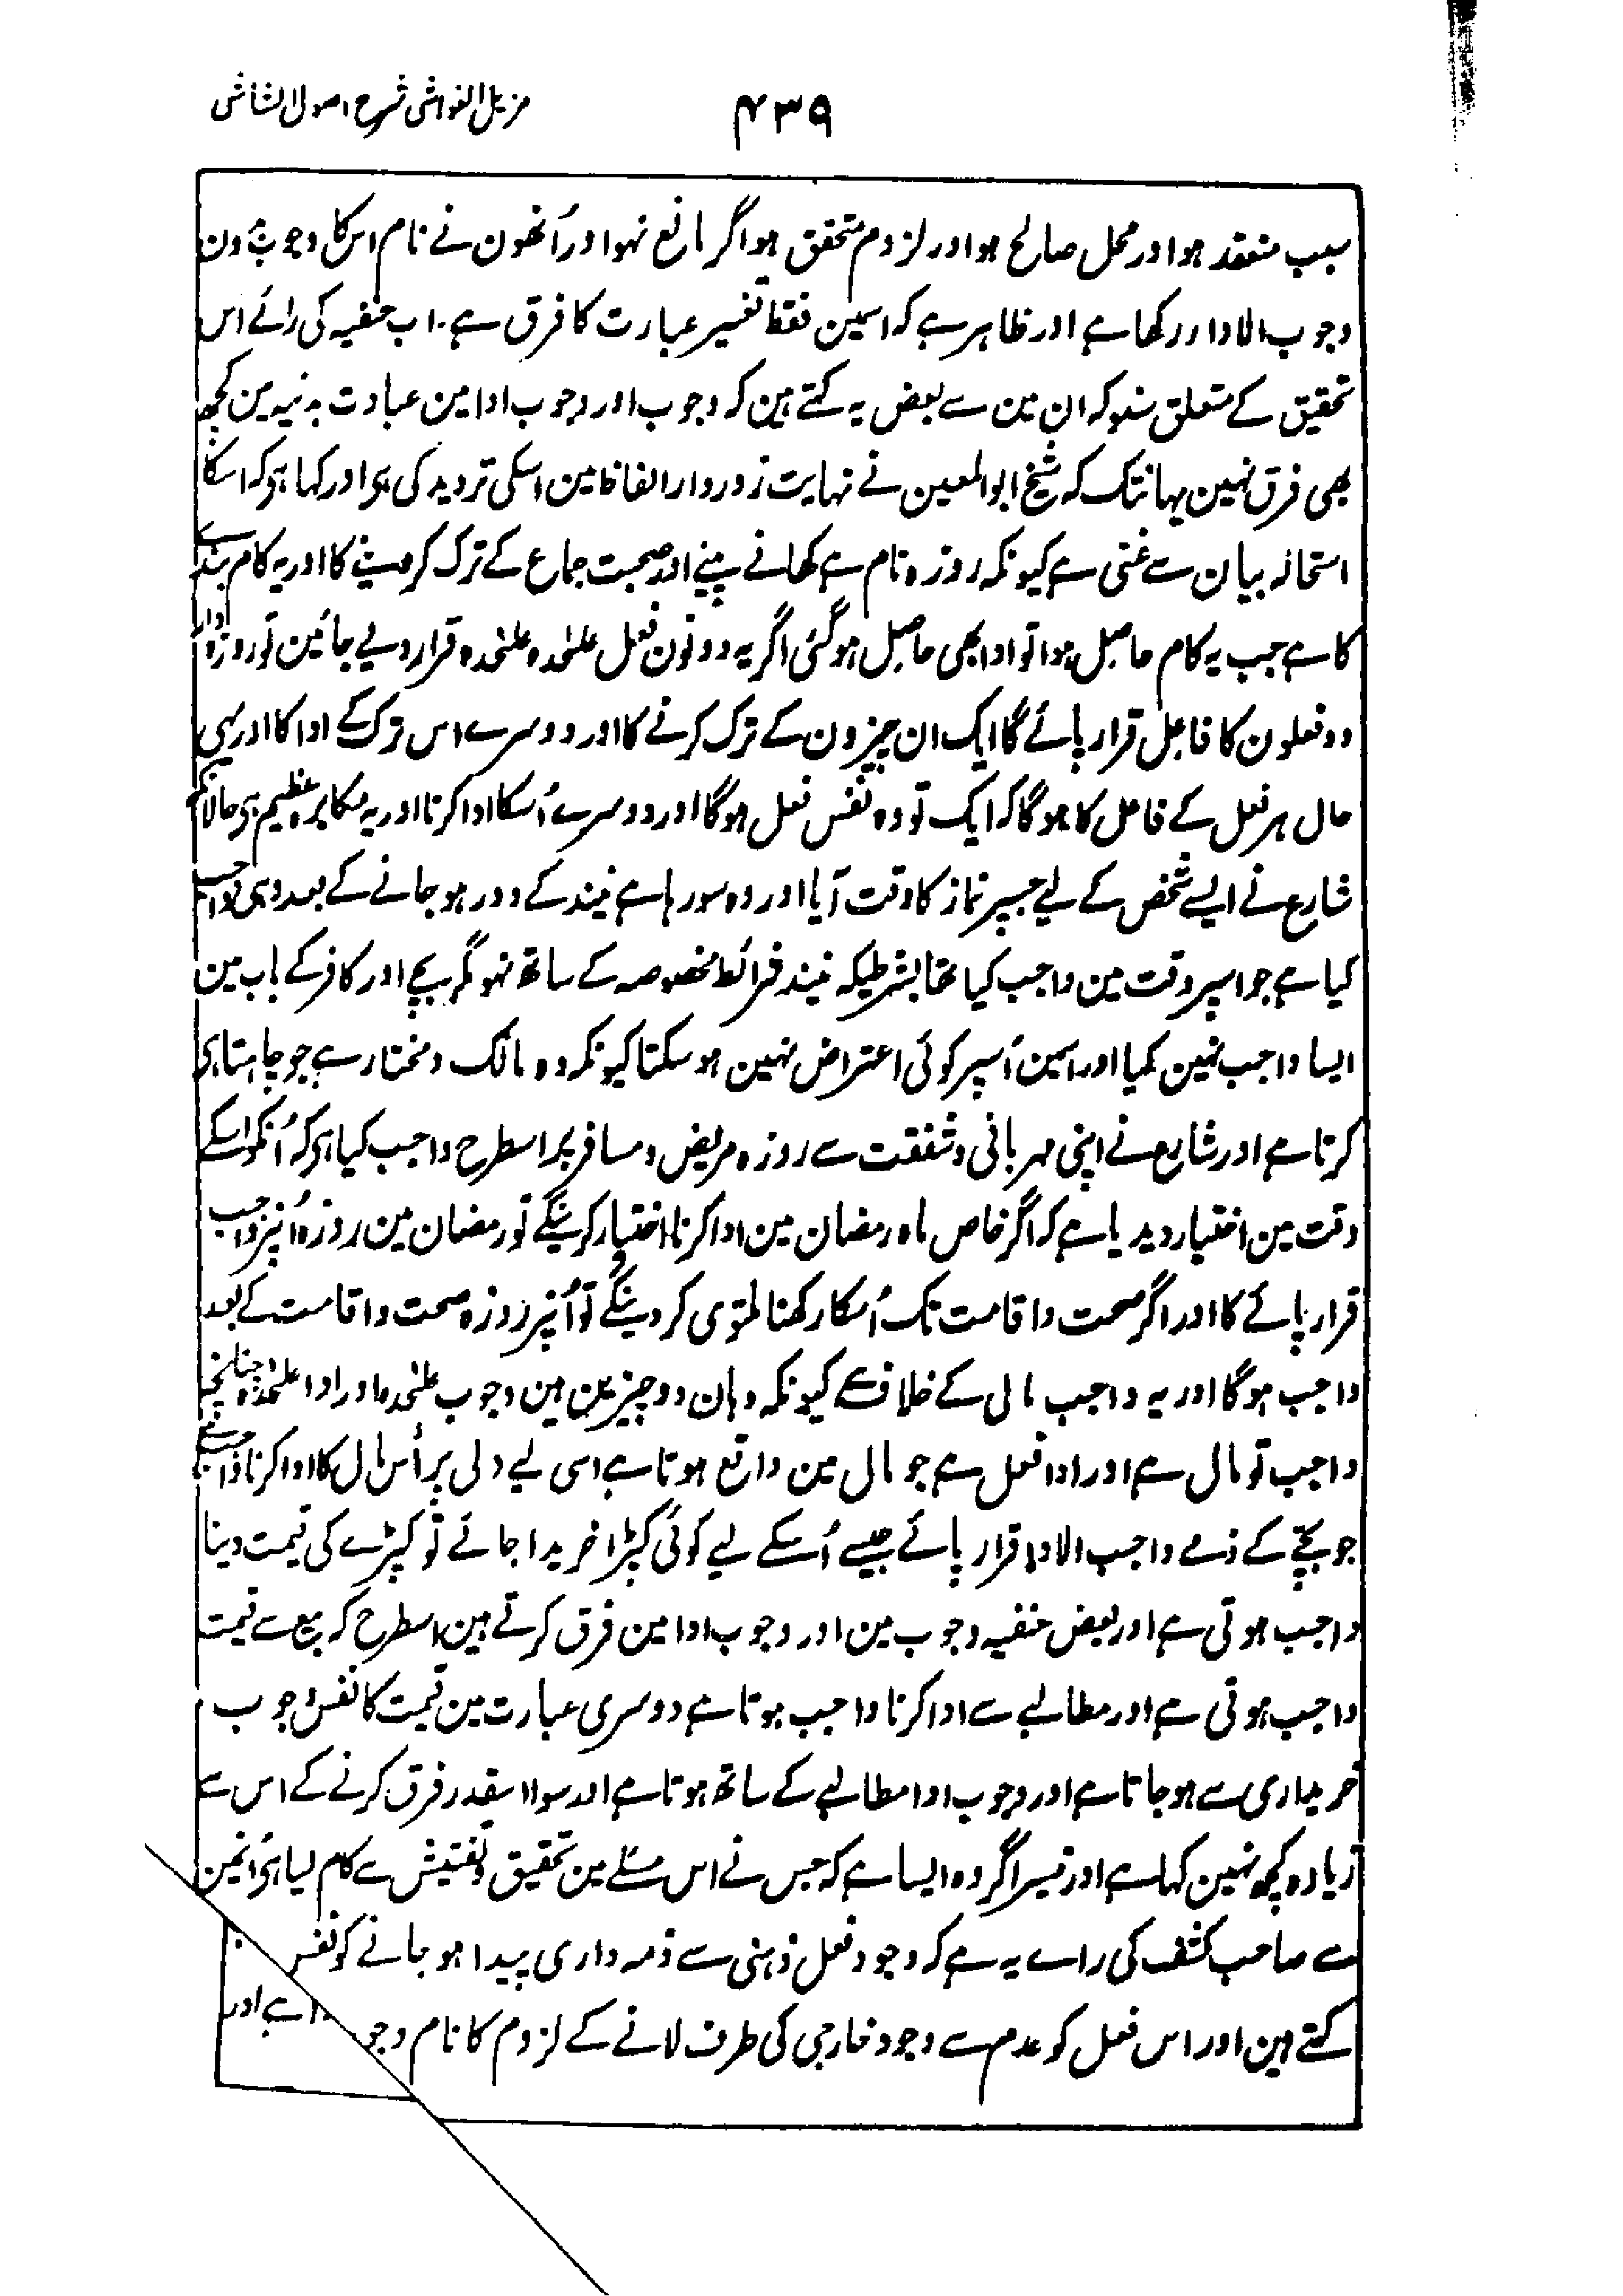 مزیل الغواشی شرح اصول الشاشی
۴۳۹
سبب منعقد ہو اور محل صالح ہو اور لزوم متحقق ہو اگر مانع نہو اور اُنھون نے نام اس کا وجوب بدون
وجوب الادا رکھا ہے اور ظاہر ہے کہ اسمین فقط تفسیر عبارت کا فرق ہے۔ اب حنفیہ کی رائے اس
تحقیق کے متعلق سنو کہ ان مین سے بعض یہ کہتے ہین کہ وجوب اور وجوب ادا مین عبادت بدنیہ مین کچھ
بھی فرق نہین یہانتک کہ شیخ ابو المعین نے نہایت زوردار الفاظ مین اسکی تردید کی ہی اور کہا ہی کہ اسکا
استحالہ بیان سے غنی ہے کیونکہ روزہ نام ہے کھانے پینے اور صحبت جماع کے ترک کردینے کا اور یہ کام بندے
کا ہے جب یہ کام حاصل ہوا تو ادا بھی حاصل ہوگئی اگر یہ دونون فعل علٰحدہ علٰحدہ قرار دیے جائین تو روزہ دار
دو فعلون کا فاعل قرار پائے گا ایک ان چیزون کے ترک کرنے کا اور دوسرے اس ترک کے ادا کا اور یہی
حال ہر فعل کے فاعل کا ہوگا کہ ایک تو وہ نفس فعل ہوگا اور دوسرے اُسکا ادا کرنا اور یہ مکابرہ عظیم ہی حالانکہ
شارع نے ایسے شخص کے لیے جسپر نماز کا وقت آیا اور وہ سو رہا ہے نیند کے دور ہو جانے کے بعد وہی واجب
کیا ہے جو اسپر وقت مین واجب کیا تھا بشرطیکہ نیند شرائط مخصوصہ کے ساتھ نہو مگر بچے اور کافر کے باب مین
ایسا واجب نہین کیا اور اسمین اُسپر کوئی اعتراض نہین ہو سکتا کیونکہ وہ مالک و مختار ہے جو چاہتا ہی
کرتا ہے اور شارع نے اپنی مہربانی و شفقت سے روزہ مریض و مسافر پر اسطرح واجب کیا ہی کہ اُنکو اسکے
وقت مین اختیار دیدیا ہے کہ اگر خاص ماہ رمضان مین ادا کرنا اختیار کرینگے تو رمضان مین روزہ اُنپر واجب
قرار پائے گا اور اگر صحت و اقامت تک اُسکا رکھنا ملتوی کردینگے تو اُنپر روزہ صحت و اقامت کے بعد
واجب ہوگا اور یہ واجب مالی کے خلاف ہے کیونکہ وہان دو چیزین ہین وجوب علٰحدہ اور ادا علٰحدہ چنانچہ
واجب تو مال ہے اور ادا فعل ہے جو مال مین واقع ہوتا ہے اسی لیے ولی پر اُس مال کا ادا کرنا واجب ہے
جو بچّے کے ذمے واجب الادا قرار پائے جیسے اُسکے لیے کوئی کپڑا خریدا جائے تو کپڑے کی قیمت دینا
واجب ہوتی ہے اور بعض حنفیہ وجوب مین اور وجوب ادا مین فرق کرتے ہین اسطرح کہ بیع سے قیمت
واجب ہوتی ہے اور مطالبے سے ادا کرنا واجب ہوتا ہے دوسری عبارت مین قیمت کا نفس وجوب
خریداری سے ہوجاتا ہے اور وجوب ادا مطالبے کے ساتھ ہوتا ہے اور سوا اسقدر فرق کرنے کے اس سے
زیادہ کچھ نہین کہا ہے اور تیسرا گروہ ایسا ہے کہ جس نے اس مسئلے مین تحقیق و تفتیش سے کام لیا ہی اُنمین
سے صاحب کشف کی راے یہ ہے کہ وجود فعل ذہنی سے ذمہ داری پیدا ہو جانے کو نفس
کہتے ہین اور اس فعل کو عدم سے وجود خارجی کی طرف لانے کے لزوم کا نام وجو ہے اور